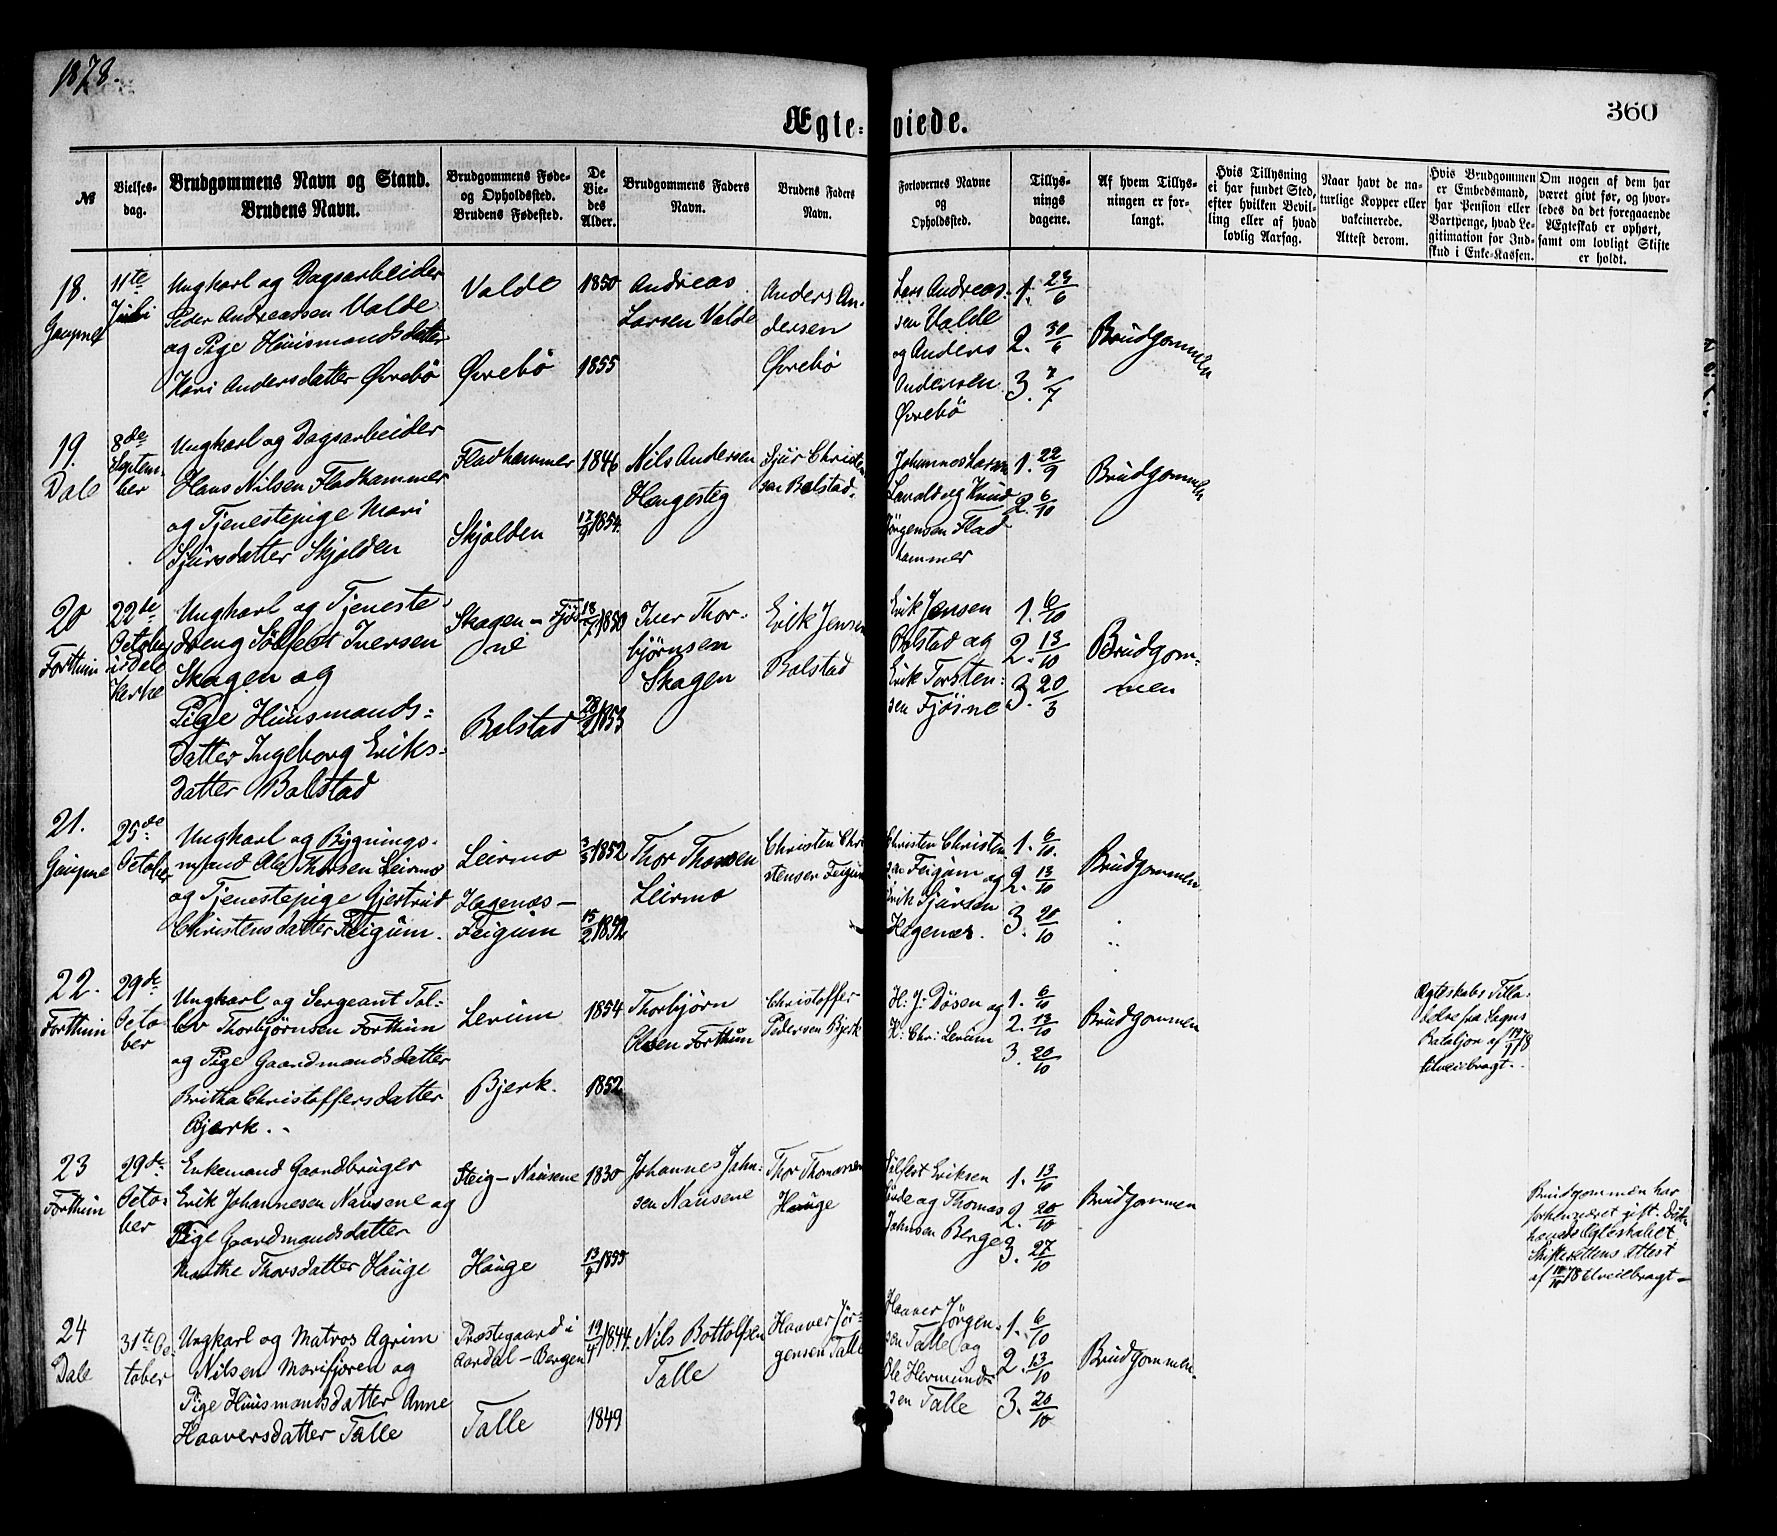 1878.
Ægteviede.
360
№
Vielses-
dag.
Brudgommens Navn og Stand.
Brudens Navn.
Brudgommens Føde-
og Opholdssted.
Brudens Fødested.
De
Vie-
des
Alder.
Brudgommens Faders
Navn.
Brudens Faders
Navn.
Forlovernes Navne
og
Opholdssted.
Tillys-
nings
dagene.
Af hvem Tillys-
ningen er for-
langt.
Hvis Tillysning
ei har fundet Sted,
efter hvilken Bevil-
ling eller af hvad
lovlig Aarsag.
Naar havt de na-
turlige Kopper eller
vakcinerede.
Attest derom.
Hvis Brudgommen
er Embedsmand,
har Pension eller
Vartpenge, hvad Le-
gitimation for Ind-
skud i Enke-Kassen.
Om nogen af dem har
været givt før, og hvor-
ledes da det foregaaende
Ægteskab er ophørt,
samt om lovligt Skifte
er holdt.
18.
Gaupne
11te
Juli
Ungkarl og Dagsarbeider
Peder Andreassen Valde
og Pige Huusmandsdatter
Kari Andersdatter Øvrebö
Valde
Øvrebö
1850
1855
Andreas
Larsen Valde
Anders An-
dersen
Øvrebö
Lars Andreas-
sen Valde
og Anders
Andersen
Øvrebö
1. 23/6
2. 30/6
3. 7/7
Brudgommen
19.
Dale
8de
Septem-
ber
Ungkarl og Dagsarbeider
Hans Nilsen Fladhammer
og Tjenestepige Mari
Sjursdatter Skjolden
Fladhammer
Skjolden
1846
17/9 1854.
Nils Andersen
Hengesteg
Sjur Christen
sen Bolstad.
Johannes Larsen
og Knud
Jörgensen Flad
hammer
1. 22/9
2. 6/10
Brudgommen
20
Forthun
22de
October
i Dale
Kirke
Ungkarl og Tjeneste-
dreng Sölfest Iversen
Skagen og
Pige Huusmands-
datter Ingeborg Eriks-
datter Bolstad
Skagen - Fjös-
ne
Bolstad
18/7 1850
28/2 1853
Iver Thor-
björnsen
Skagen
Erik Jensen
Bolstad
Erik Jensen
Bolstad og
Erik Torsten-
sen Fjösne
1. 6/10
2. 13/10
3. 20/3
Brudgom-
men
21.
Gaupne
25de
October
Ungkarl og Bygnings-
mand Ole Thorsen Leirmo
og Tjenestepige Gjertrud
Christensdatter Feigum.
Leirmo
Hagenæs -
Feigum
3/3 1852
15/2 1852
Thor Thorsen
Leirmo
Christen Chri
stensen Feigum
Christen Christen
sen Feigum og
Erik Sjursen
Hagenæs.
1. 6/10.
2. 13/10
3. 20/10
Brudgommen
22.
Forthun
29de
Octo-
ber
Ungkarl og Sergeant Tol-
lev Thorbjörnsen Forthun
og Pige Gaardmandsdatter
Britha Christoffersdatter
Bjerk..
Lerum
Bjerk.
1854
1852
Thorbjörn
Olsen Forthun
Christoffer
Pedersen Bjerk
H: J: Dösen og
K: Chr: Lerum
1. 6/10
2. 13/10
3. 20/10
Brudgommen
Ægteskabs Tilla-
delse fra Sogns
Bataljon af 19/9 78
tilveiebragt.
23
Forthun
29de
Octo-
ber
Enkemand Gaardbruger
Erik Johannesen Nausene og
Pige Gaardmandsdatter
Marthe Thorsdatter Hauge
Steig - Nausene
Hauge
1830
13/9 1855
Johannes John-
sen Nausene
Thor Thomassen
Hauge
Sölfest Eriksen
og Thomas
Johnsen Berge
1. 13/10
2. 20/10
3. 27/10
Brudgommen
Brudgommen har
forhen været gift.
Ægteskabet
Skifterettens Attest
af 18/10 78 tilveiebragt -
24
Dale
31te Oc
tober
Ungkarl og Matros Agrim
Nilsen Marifjoren og
Pige Huusmandsdatter Anne
Haaversdatter Talle
Præstegaard i
Aardal - Bergen
Talle
19/4 1844.
1849
Nils Bottolfsen
Talle
Haaver Jör-
gensen Talle
Haaver Jörgen-
sen Talle og
Ole Hermunds-
sen Talle
1. 6/10
2. 13/10
3. 20/10
Brudgommen.